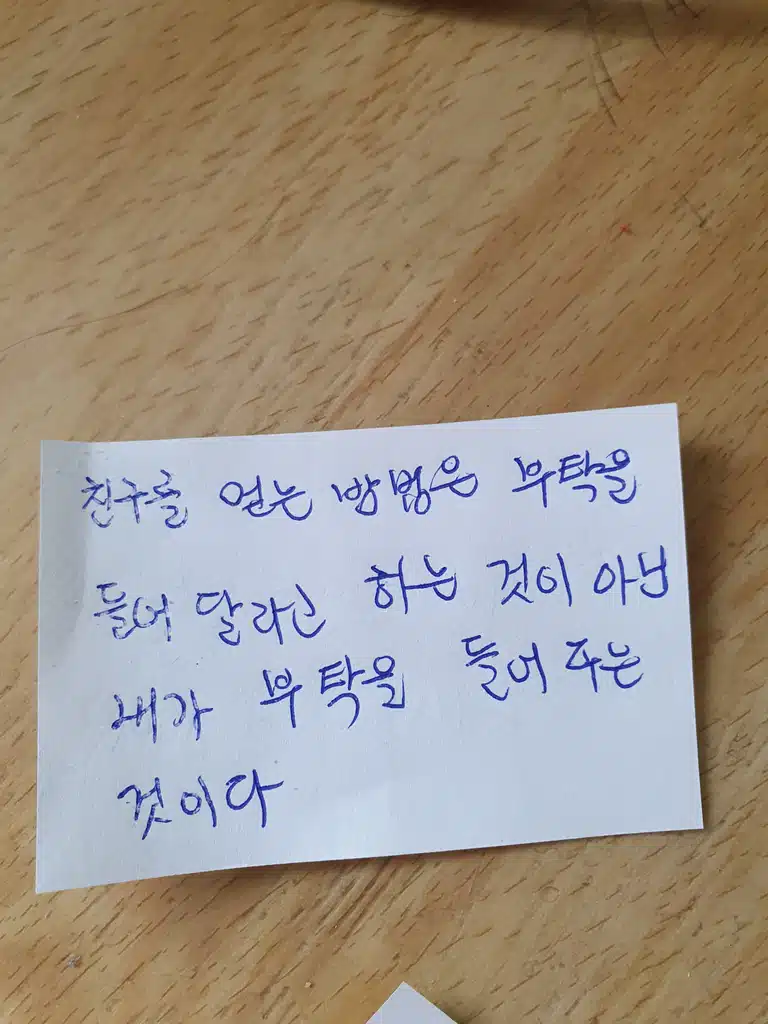 친구를 얻는 방법은 부탁을
들어 달라고 하는 것이 아닌
내가 부탁을 들어 주는
것이다